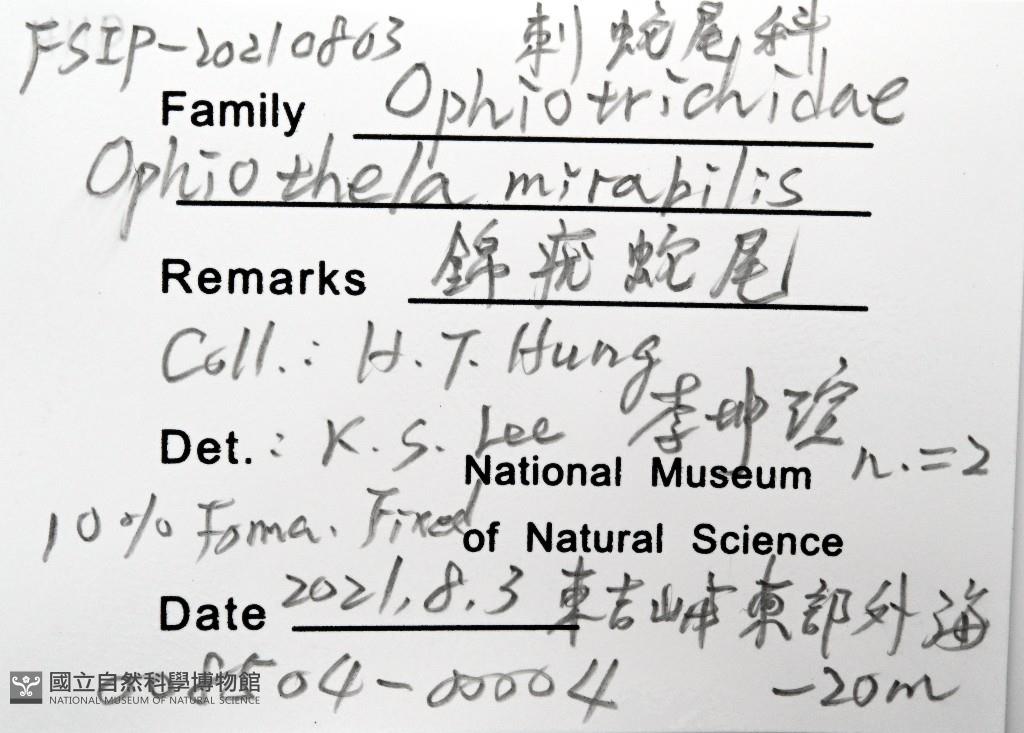 FSIP-20210803 刺蛇尾科
Family Ophiotrichidae
Ophiothela mirabilis
Remarks 錦疣蛇尾
Coll.: H.T. Hung
Det.: K.S. Lee 李坤瑄
National Museum n.=2
10% Foma. Fixed
of Natural Science
Date 2021.8.3 東吉嶼東部外海
8504-00004 -20m
國立自然科學博物館
NATIONAL MUSEUM OF NATURAL SCIENCE